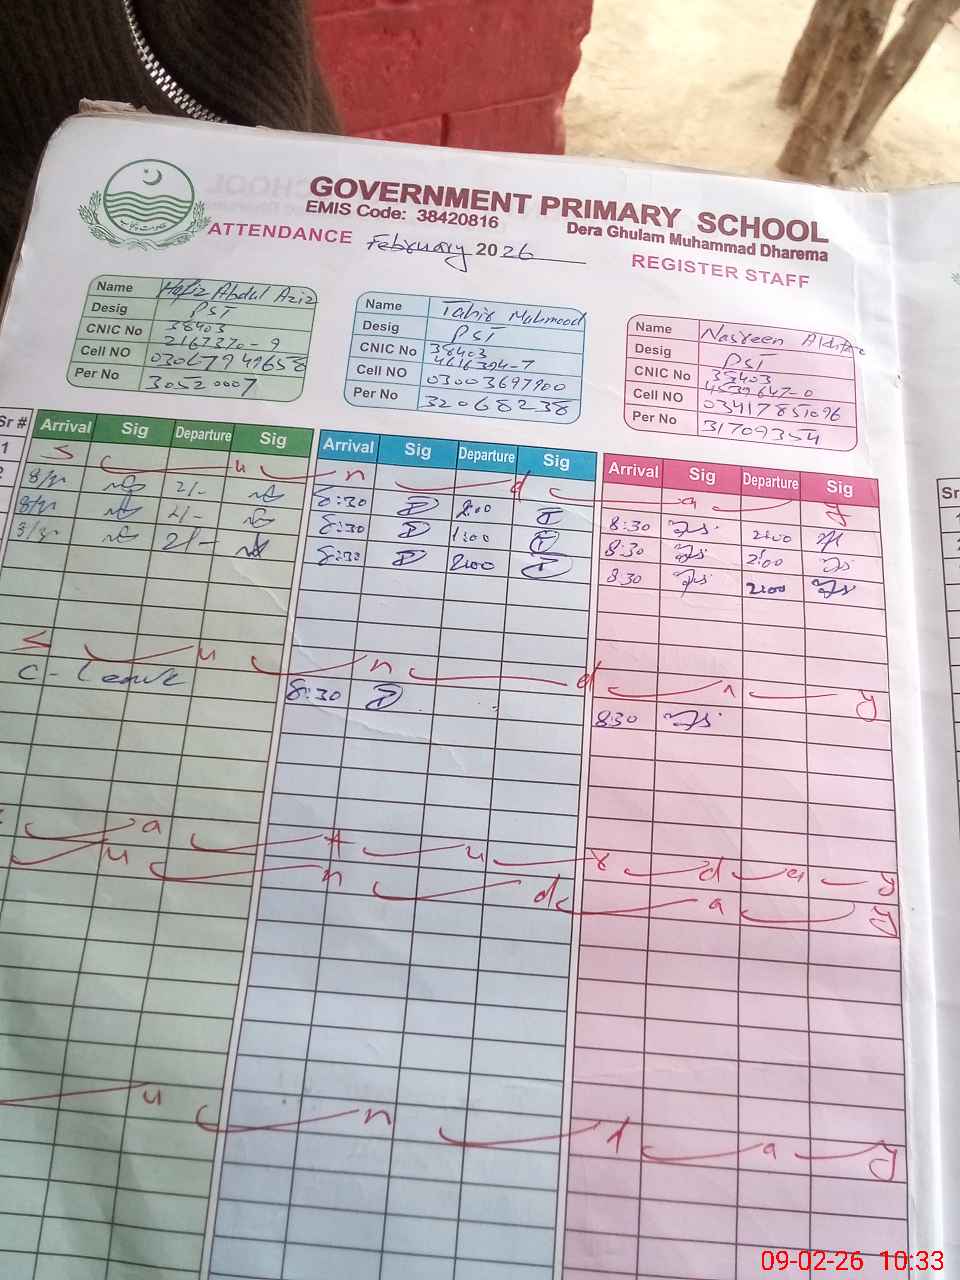 GOVERNMENT PRIMARY SCHOOL
EMIS Code: 38420816
Dera Ghulam Muhammad Dharema
ATTENDANCE February 2026
REGISTER STAFF
Name Hafiz Abdul Aziz
Desig PST
CNIC No 38403
2167370-9
Cell NO 03067949658
Per No 30520007
Name Tahir Mahmood
Desig PST
CNIC No 38403
Cell NO 03003697900
Per No 32068238
Name Nasreen Akhtar
Desig PST
CNIC No 38403
4539647-0
Cell NO 03417851096
Per No 31709354
Sr # Arrival Sig Departure Sig Arrival Sig Departure Sig Arrival Sig Departure Sig
1 S u n d a y
2/- 8:30 2:00 8:30 2:00
2/- 8:30 1:00 8:30 2:00
2/- 8:30 2:00 8:30 2:00
S u n d a y
C-Leave 8:30 8:30
S a t u r d a y
S u n d a y
u n d a y
Sr
09-02-26 10:33